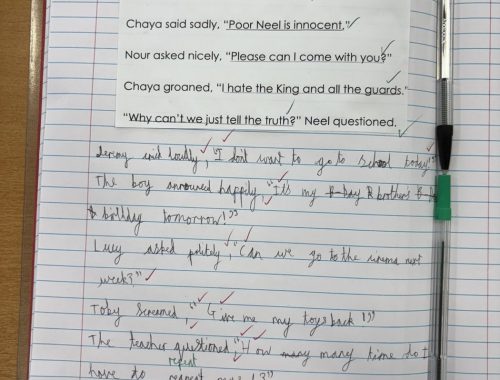 Chaya said sadly, "Poor Neel is innocent."
Nour asked nicely, "Please can I come with you?"
Chaya groaned, "I hate the King and all the guards."
"Why can't we just tell the truth?" Neel questioned.
Jeremy said loudly, "I don't want to go to school today!"
The boy announced happily, "It's my B-day R brothers B
birthday tomorrow!"
Lucy asked politely, "Can we go to the cinema next
week?"
Toby screamed, "Give me my toys back!"
The teacher questioned, "How many many time do I
repeat
have to